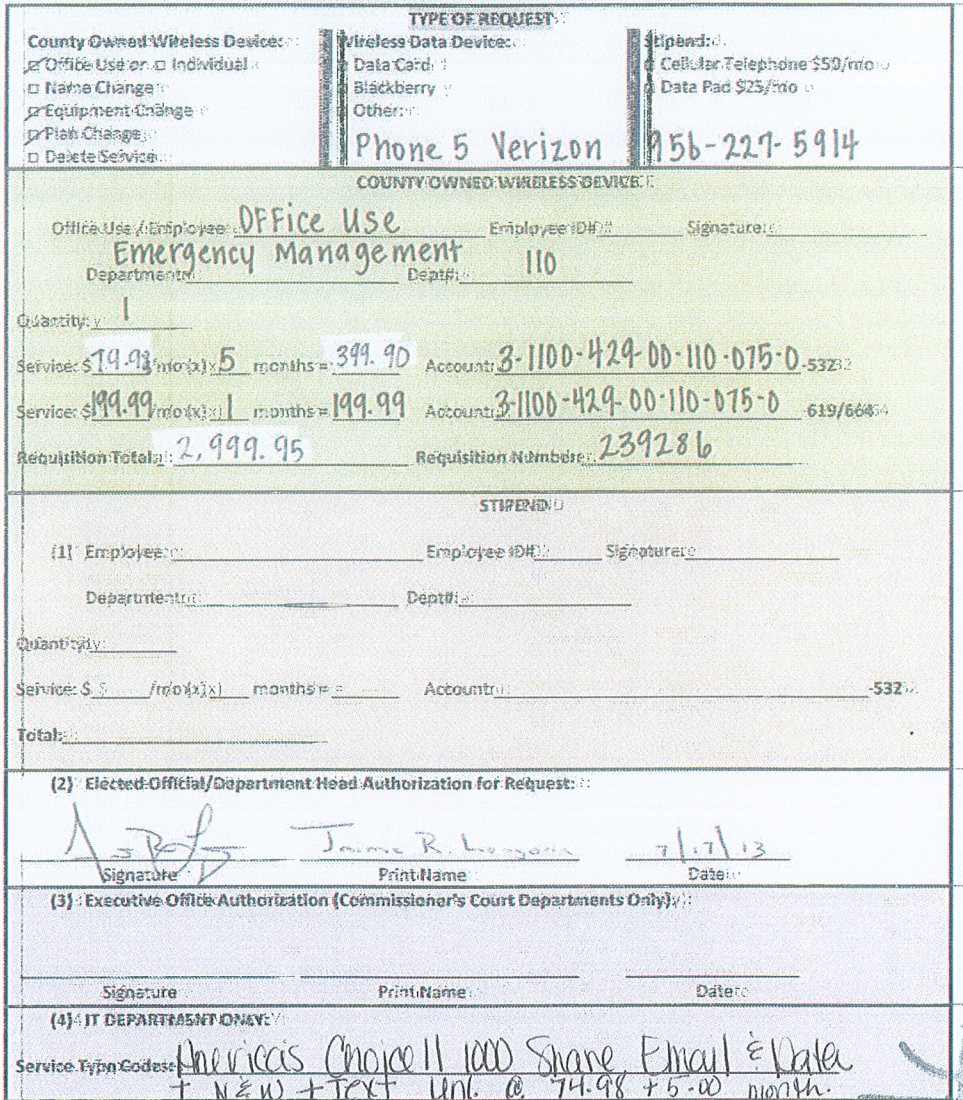 TYPE OF REQUEST
County Owned Wireless Device: Wireless Data Device: Stipend:
Office Use or □ Individual □ Data Card □ Cellular Telephone $50/mo
□ Name Change □ Blackberry □ Data Pad $25/mo
Equipment Change □ Other:
Plan Change Phone 5 Verizon 956-227-5914
□ Delete Service
COUNTY OWNED WIRELESS DEVICE
Office Use / Employee: Office Use Employee ID# Signature:
Department: Emergency Management Dept#: 110
Quantity: 1
Service: $79.98/mo (x) 5 months = 399.90 Account: 3-1100-429-00-110-075-0-532
Service: $199.99/mo (x) 1 months = 199.99 Account: 3-1100-429-00-110-075-0 -619/664
Requisition Total: 2,999.95 Requisition Number: 239286
STIPEND
(1) Employee: Employee ID# Signature:
Department: Dept#:
Quantity:
Service: $ /mo (x) months = Account: -532
Total:
(2) Elected Official/Department Head Authorization for Request:
Jaime R. Longoria 7/17/13
Signature Print Name Date
(3) Executive Office Authorization (Commissioner's Court Departments Only):
Signature Print Name Date
(4) IT DEPARTMENT ONLY:
Service Type Codes: America's Choice II 1000 Share, Email & Data
+ N&W + Text Unl. @ 74.98 + 5.00 month.